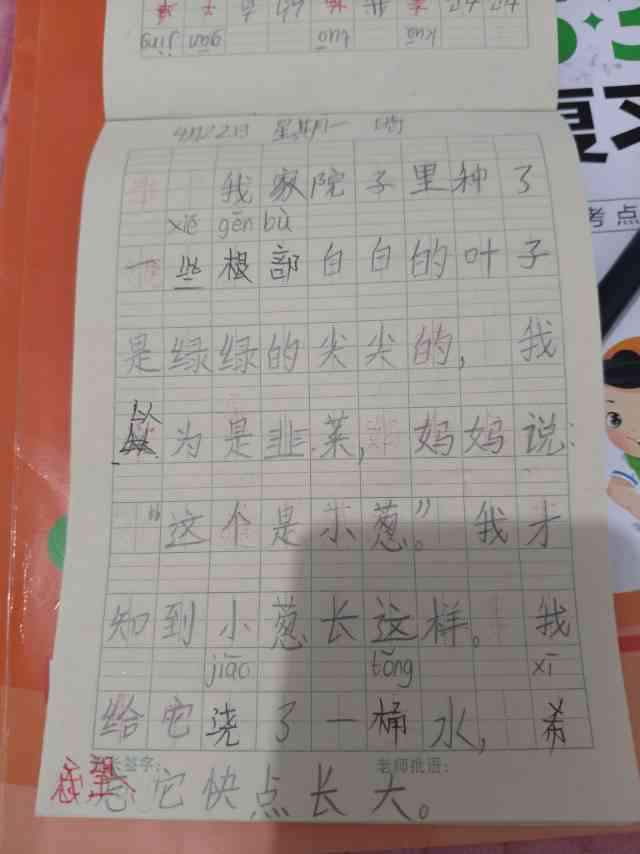 jīng gān tuō kuā
4月22日 星期一 晴
我家院子里种了
xiē gēn bù
一些根部白白的叶子
是绿绿的尖尖的,我
以为是韭菜,妈妈说:
“这个是小葱。”我才
知到小葱长这样。我
jiāo tǒng xī
给它浇了一桶水,希
家长签字: 老师批语:
望它快点长大。
复习
考点